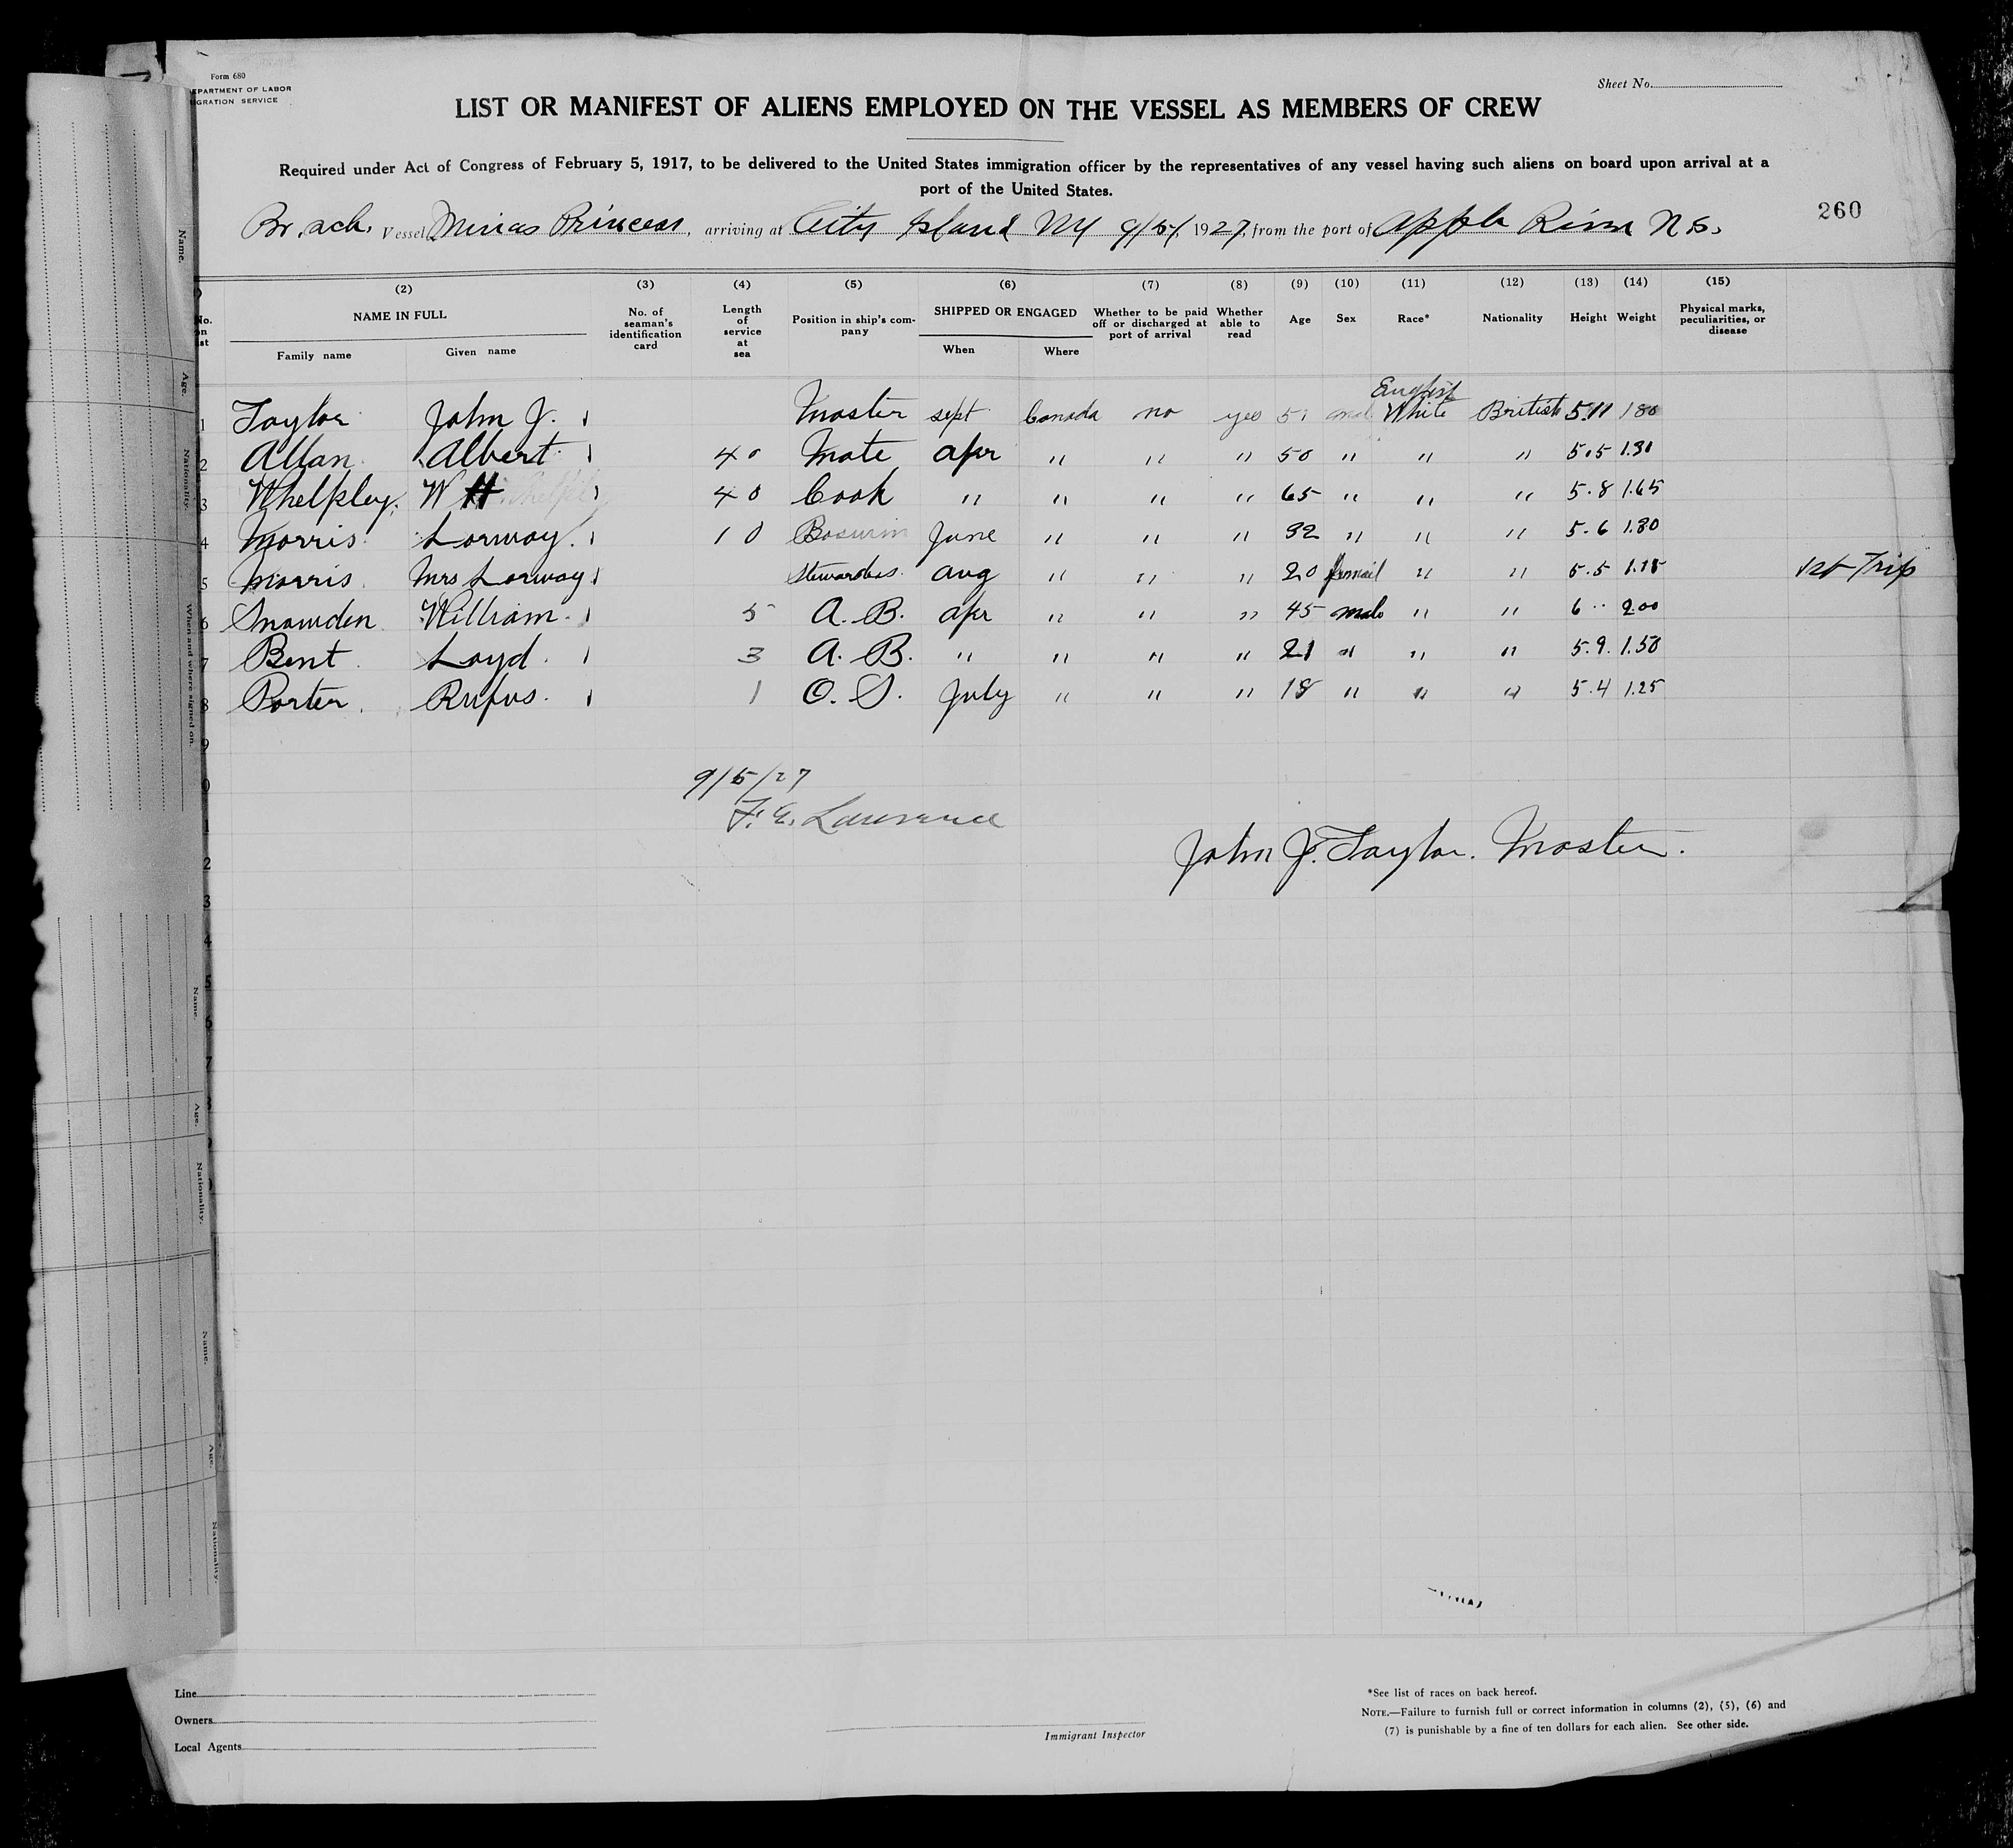 Form 680
EPARTMENT OF LABOR
IGRATION SERVICE
Sheet No.
LIST OR MANIFEST OF ALIENS EMPLOYED ON THE VESSEL AS MEMBERS OF CREW
Required under Act of Congress of February 5, 1917, to be delivered to the United States immigration officer by the representatives of any vessel having such aliens on board upon arrival at a
port of the United States.
260
Br. sch. Vessel Minas Princess, arriving at City Island NY 9/5/, 1927, from the port of Apple River N.S.
(2) (3) (4) (5) (6) (7) (8) (9) (10) (11) (12) (13) (14) (15)
No. on ist NAME IN FULL Family name Given name No. of seaman's identification card Length of service at sea Position in ship's company SHIPPED OR ENGAGED When Where Whether to be paid off or discharged at port of arrival Whether able to read Age Sex Race* Nationality Height Weight Physical marks, peculiarities, or disease
English
1 Taylor John J. Master sept Canada no yes 51 White British 5 11 180
2 Allan Albert 40 Mate apr " " " 50 " " " 5.5 1.30
3 Whelpley W H 40 Cook " " " " 65 " " " 5.8 1.65
4 Morris Lorway. 10 Boswin June " " " 32 " " " 5.6 1.80
5 Morris Mrs Lorway Stewardess. aug " " " 20 femail " " 5.5 1.15 1st Trip
6 Snowden William. 5 A. B. apr " " " 45 male " " 6 2.00
7 Bent Loyd. 3 A. B. " " " " 21 " " " 5.9. 1.50
8 Porter Rufus. 1 O. S. July " " " 18 " " " 5.4 1.25
9
0
1
2
3
4
5
6
7
9/5/27
F. E. Lawrence
John J. Taylor. Master.
Name.
Age.
Nationality.
When and where signed on.
Name.
Age.
Nationality.
Name.
Age.
Nationality.
Line
Owners
Local Agents
Immigrant Inspector
*See list of races on back hereof.
NOTE.—Failure to furnish full or correct information in columns (2), (5), (6) and
(7) is punishable by a fine of ten dollars for each alien. See other side.